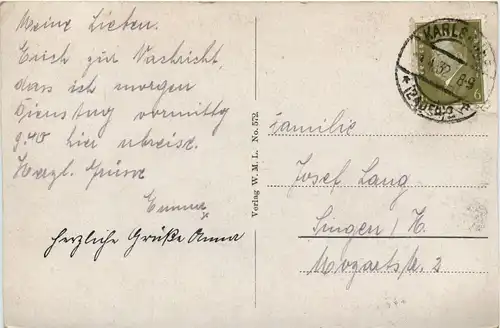 Meine Lieben.
Euch zur Nachricht,
dass ich morgen
Dienstag vormittg
9.40 hier abreise.
Herzl. Grüsse
Emma
herzliche Grüße Anna
Verlag W. M. L. No. 572.
KARLSRUHE
32 8-9
2
6
Familie
Josef Lang
Singen / H.
Mozartstr. 2